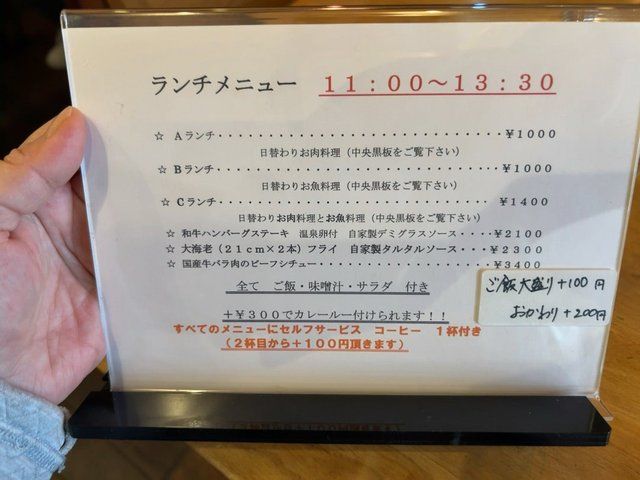 ランチメニュー　11：00～13：30
☆ Aランチ・・・・・・・・・・・・・・・・・・・・・・・・・・・・・・・￥1000
日替わりお肉料理（中央黒板をご覧下さい）
☆ Bランチ・・・・・・・・・・・・・・・・・・・・・・・・・・・・・・・￥1000
日替わりお魚料理（中央黒板をご覧下さい）
☆ Cランチ・・・・・・・・・・・・・・・・・・・・・・・・・・・・・・￥1400
日替わりお肉料理とお魚料理（中央黒板をご覧下さい）
☆ 和牛ハンバーグステーキ　温泉卵付　自家製デミグラスソース・・・・￥2100
☆ 大海老（21cm×2本）フライ　自家製タルタルソース・・・￥2300
☆ 国産牛バラ肉のビーフシチュー・・・・・・・・・・・・・・・・・・・￥3400
全て　ご飯・味噌汁・サラダ　付き
ご飯大盛り+100円
おかわり+200円
＋￥300でカレールー付けられます！！
すべてのメニューにセルフサービス　コーヒー　1杯付き
（2杯目から＋100円頂きます）